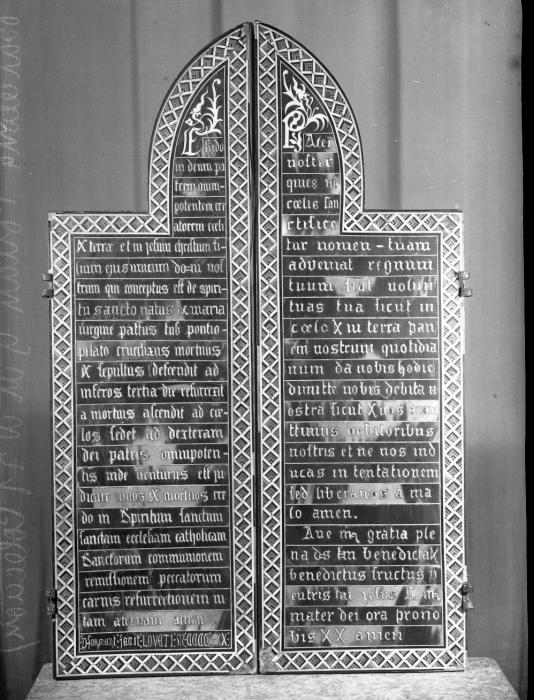 Credo
in deum pa
trem omni-
potentem cre
atorem celi
X terræ et in jesum christum fi-
lium ejus unicum do-ni nos
trum qui conceptus est de spiri-
tu sancto natus ex maria
virgine passus sub pontio-
pilato crucifixus mortuus
X sepultus descendit ad
inferos tertia die resurrexit
a mortuis ascendit ad cœ-
los sedet ad dexteram
dei patris omnipoten-
tis inde venturus est ju
dicare vivos X mortuos cre
do in Spiritum sanctum
sanctam ecclesiam catholicam
Sanctorum communionem
remissionem peccatorum
carnis resurrectionem vi
tam æternam amen
Pater
noster
qui es in
cœlis san
ctifice
tur nomen - tuam
adveniat regnum
tuum fiat volun
tuas tua sicut in
cœlo X in terra pan
em nostrum quotidia
num da nobis hodie
dimitte nobis debita n
ostra sicut X nos dimi
ttimus debitoribus
nostris et ne nos ind
ucas in tentationem
sed liberanos a ma
lo amen.
Ave m gratia ple
na ds tm benedicta X
benedictus fructus v
entris tui jesus S. m
mater dei ora prono
bis X X amen